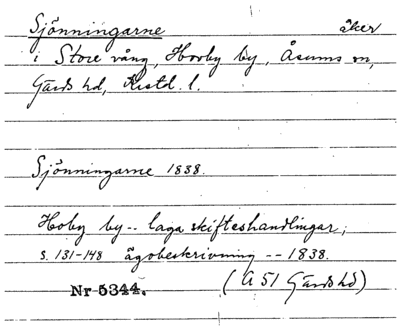 Sjönningarne åker
i Store vång, Hovby by, Åsums sn,
Gärds hd, Krstd. l.
Sjönningarne 1838.
Hoby by -- laga skifteshandlingar,
s. 131-148 ägobeskrivning -- 1838.
Nr 5344. (A 51 Gärds hd)